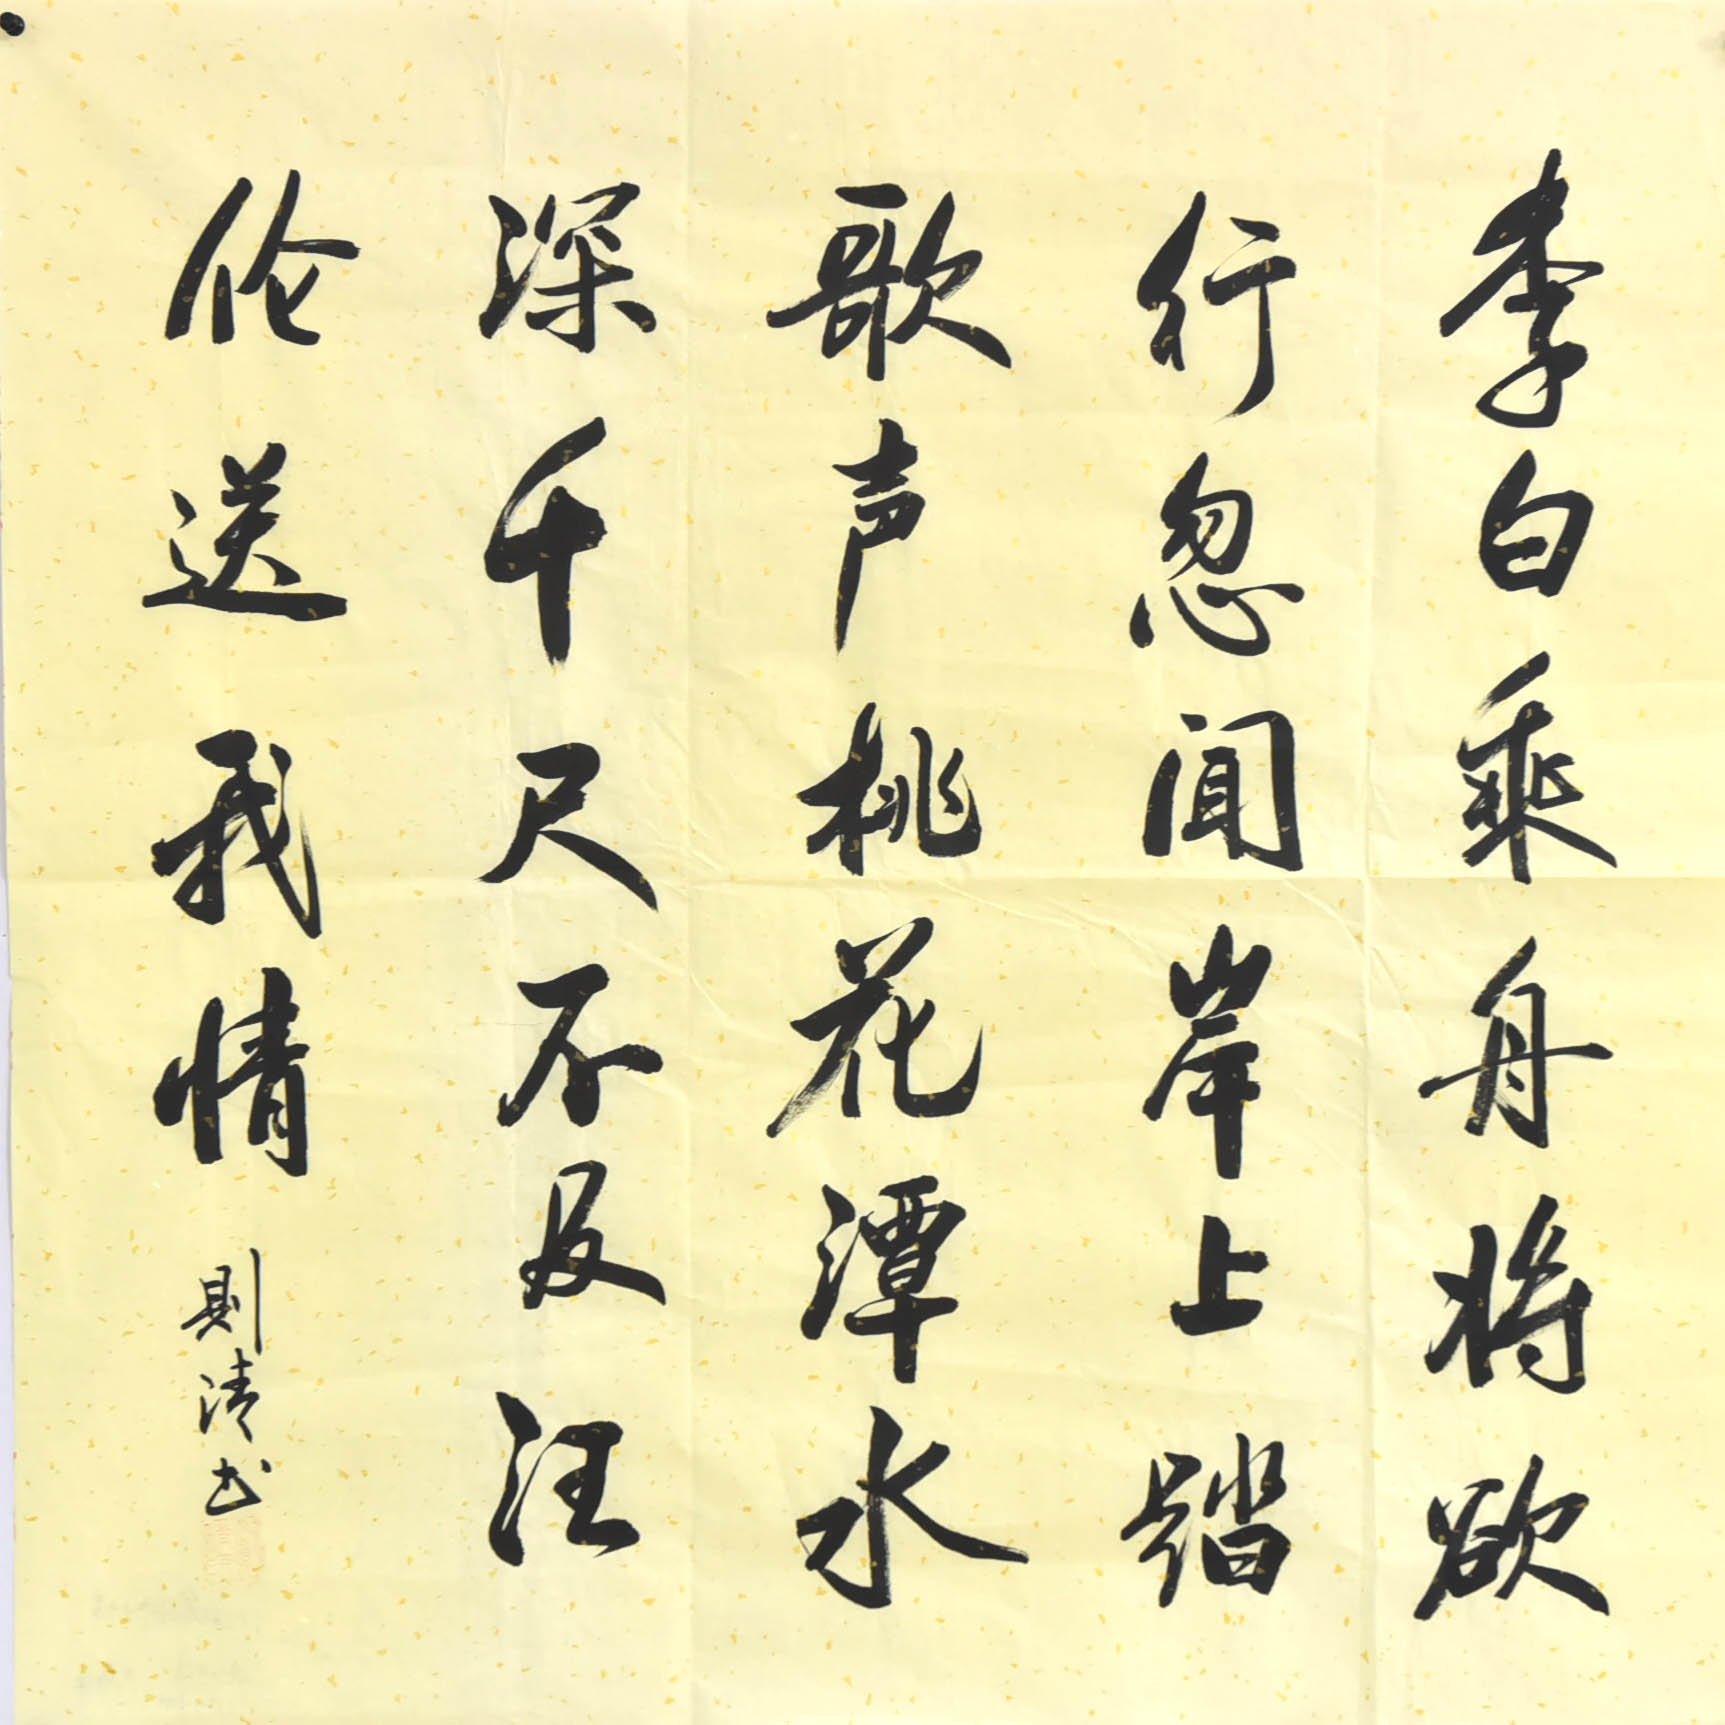 李白乘舟将欲
行忽闻岸上踏
歌声桃花潭水
深千尺不及汪
伦送我情
則清书